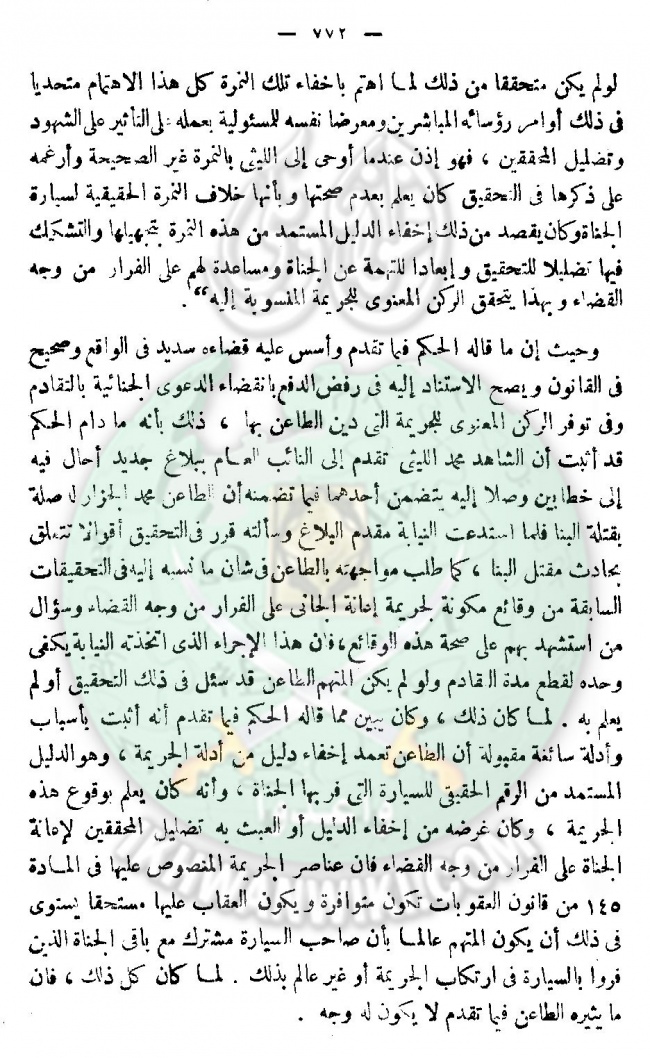 — ٧٧٢ —
لولم يكن متحققا من ذلك لما اهتم باخفاء تلك النمرة كل هذا الاهتمام متحديا
فى ذلك أوامر رؤسائه المباشرين ومعرضا نفسه للمسئولية بعمله على التأثير على الشهود
وتضليل المحققين ، فهو إذن عندما أوحى إلى الليثى بالنمرة غير الصحيحة وأرغمه
على ذكرها فى التحقيق كان يعلم بعدم صحتها وبأنها خلاف النمرة الحقيقية لسيارة
الجناة وكان يقصد من ذلك إخفاء الدليل المستمد من هذه النمرة بتجهيلها والتشكيك
فيها تضليلا للتحقيق وإبعادا للتهمة عن الجناة ومساعدة لهم على الفرار من وجه
القضاء وبهذا يتحقق الركن المعنوى للجريمة المنسوبة إليه“ .
وحيث إن ما قاله الحكم فيما تقدم وأسس عليه قضاءه سديد فى الواقع وصحيح
فى القانون ويصح الاستناد إليه فى رفض الدفع بانقضاء الدعوى الجنائية بالتقادم
وفى توفر الركن المعنوى للجريمة التى دين الطاعن بها ، ذلك بأنه ما دام الحكم
قد أثبت أن الشاهد محمد الليثى تقدم إلى النائب العام ببلاغ جديد أحال فيه
إلى خطابين وصلا إليه يتضمن أحدهما فيما تضمنه أن الطاعن محمد الجزار له صلة
بقتلة البنا فلما استدعت النيابة مقدم البلاغ وسألته قرر فى التحقيق أقوالا تتعلق
بحادث مقتل البنا ، كما طلب مواجهته بالطاعن فى شان ما نسبه إليه فى التحقيقات
السابقة من وقائع مكونة لجريمة إعانة الجانى على الفرار من وجه القضاء وسؤال
من استشهد بهم على صحة هذه الوقائع ، فان هذا الإجراء الذى اتخذته النيابة يكفى
وحده لقطع مدة التقادم ولو لم يكن المتهم الطاعن قد سئل فى ذلك التحقيق أو لم
يعلم به . لما كان ذلك ، وكان يبين مما قاله الحكم فيما تقدم أنه أثبت بأسباب
وأدلة سائغة مقبولة أن الطاعن تعمد إخفاء دليل من أدلة الجريمة ، وهو الدليل
المستمد من الرقم الحقيقى للسيارة التى فر بها الجناة ، وأنه كان يعلم بوقوع هذه
الجريمة ، وكان غرضه من إخفاء الدليل أو العبث به تضليل المحققين لإعانة
الجناة على الفرار من وجه القضاء فان عناصر الجريمة المنصوص عليها فى المادة
١٤٥ من قانون العقوبات تكون متوافرة ويكون العقاب عليها مستحقا يستوى
فى ذلك أن يكون المتهم عالما بأن صاحب السيارة مشترك مع باقى الجناة الذين
فروا بالسيارة فى ارتكاب الجريمة أو غير عالم بذلك . لما كان كل ذلك ، فان
ما يثيره الطاعن فيما تقدم لا يكون له وجه .